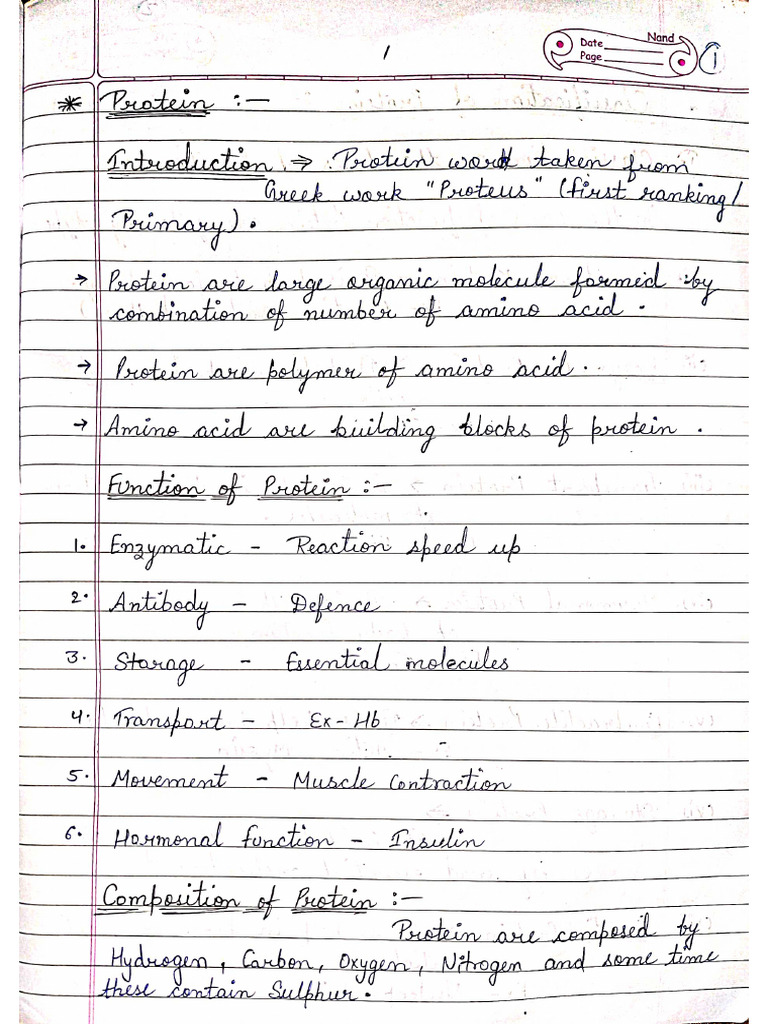 1
Nand
Date
Page
1
* Protein :-
Introduction ⇒ Protein word taken from
Greek work "Proteus" (first ranking/
Primary).
→ Protein are large organic molecule formed by
combination of number of amino acid.
→ Protein are polymer of amino acid.
→ Amino acid are building blocks of protein.
Function of Protein :-
1. Enzymatic - Reaction speed up
2. Antibody - Defence
3. Storage - Essential molecules
4. Transport - Ex- Hb
5. Movement - Muscle Contraction
6. Hormonal function - Insulin
Composition of Protein :-
Protein are composed by
Hydrogen, Carbon, Oxygen, Nitrogen and some time
these contain Sulphur.